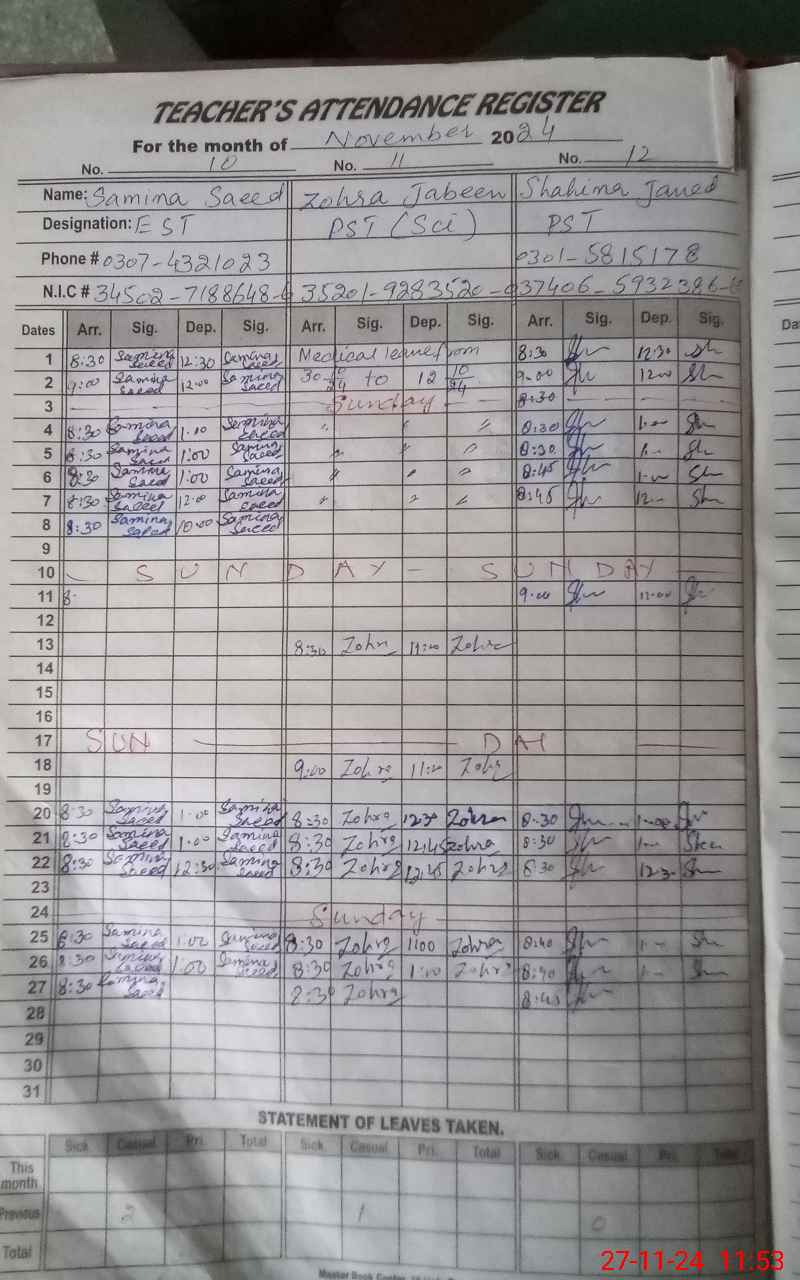 TEACHER'S ATTENDANCE REGISTER
For the month of November 2024
No. 10 No. 11 No. 12
Name: Samina Saeed Zohra Jabeen Shahina Javed
Designation: EST PST (Sci) PST
Phone # 0307-4321023 0301-5815178
N.I.C # 34502-7188648- 35201-9283520- 37406-5932386-
Dates Arr. Sig. Dep. Sig. Arr. Sig. Dep. Sig. Arr. Sig. Dep. Sig.
1 8:30 Samina Saeed 12:30 Samina Saeed Medical leave from 8:30 12:30
2 9:00 Samina Saeed 12:00 Samina Saeed 30 10/24 to 12 10/24 9:00 12:00
3 Sunday 8:30
4 8:30 Samina Saeed 1:00 Samina Saeed " " " 8:30 1:00
5 8:30 Samina Saeed 1:00 Samina Saeed " " " 8:30 1:
6 8:30 Samina Saeed 1:00 Samina Saeed " " " 8:45 1:00
7 8:30 Samina Saeed 12:00 Samina Saeed " " " 8:45 12:
8 8:30 Samina Saeed 10:00 Samina Saeed
9
10 SUNDAY - SUNDAY
11 8: 9:00
12
13 8:30 Zohra 11:00 Zohra
14
15
16
17 SUN DAY
18 9:00 Zohra 11:00 Zohra
19
20 8:30 Samina Saeed 1:00 Samina Saeed 8:30 Zohra 12:30 Zohra 8:30 1:00
21 8:30 Samina Saeed 1:00 Samina Saeed 8:30 Zohra 12:45 Zohra 8:30 1:
22 8:30 Samina Saeed 12:30 Samina Saeed 8:30 Zohra 12:45 Zohra 8:30 12:30
23
24 Sunday
25 8:30 Samina Saeed 1:00 Samina Saeed 8:30 Zohra 1:00 Zohra 8:40 1:
26 8:30 Samina Saeed 1:00 Samina Saeed 8:30 Zohra 1:00 Zohra 8:40 1:
27 8:30 Samina Saeed 8:30 Zohra 8:45
28
29
30
31
STATEMENT OF LEAVES TAKEN.
Sick Casual Pri. Total Sick Casual Pri. Total Sick Casual Pri. Total
This month
Previous 2 1 0
Total
27-11-24 11:53